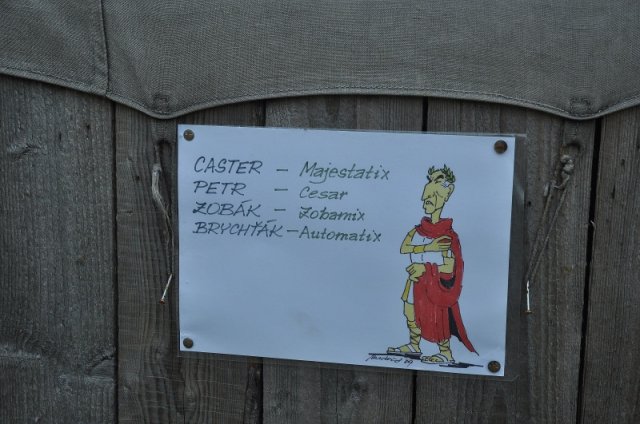 CASTER – Majestatix
PETR – Cesar
ZOBÁK – Zobamix
BRYCHŤÁK – Automatix